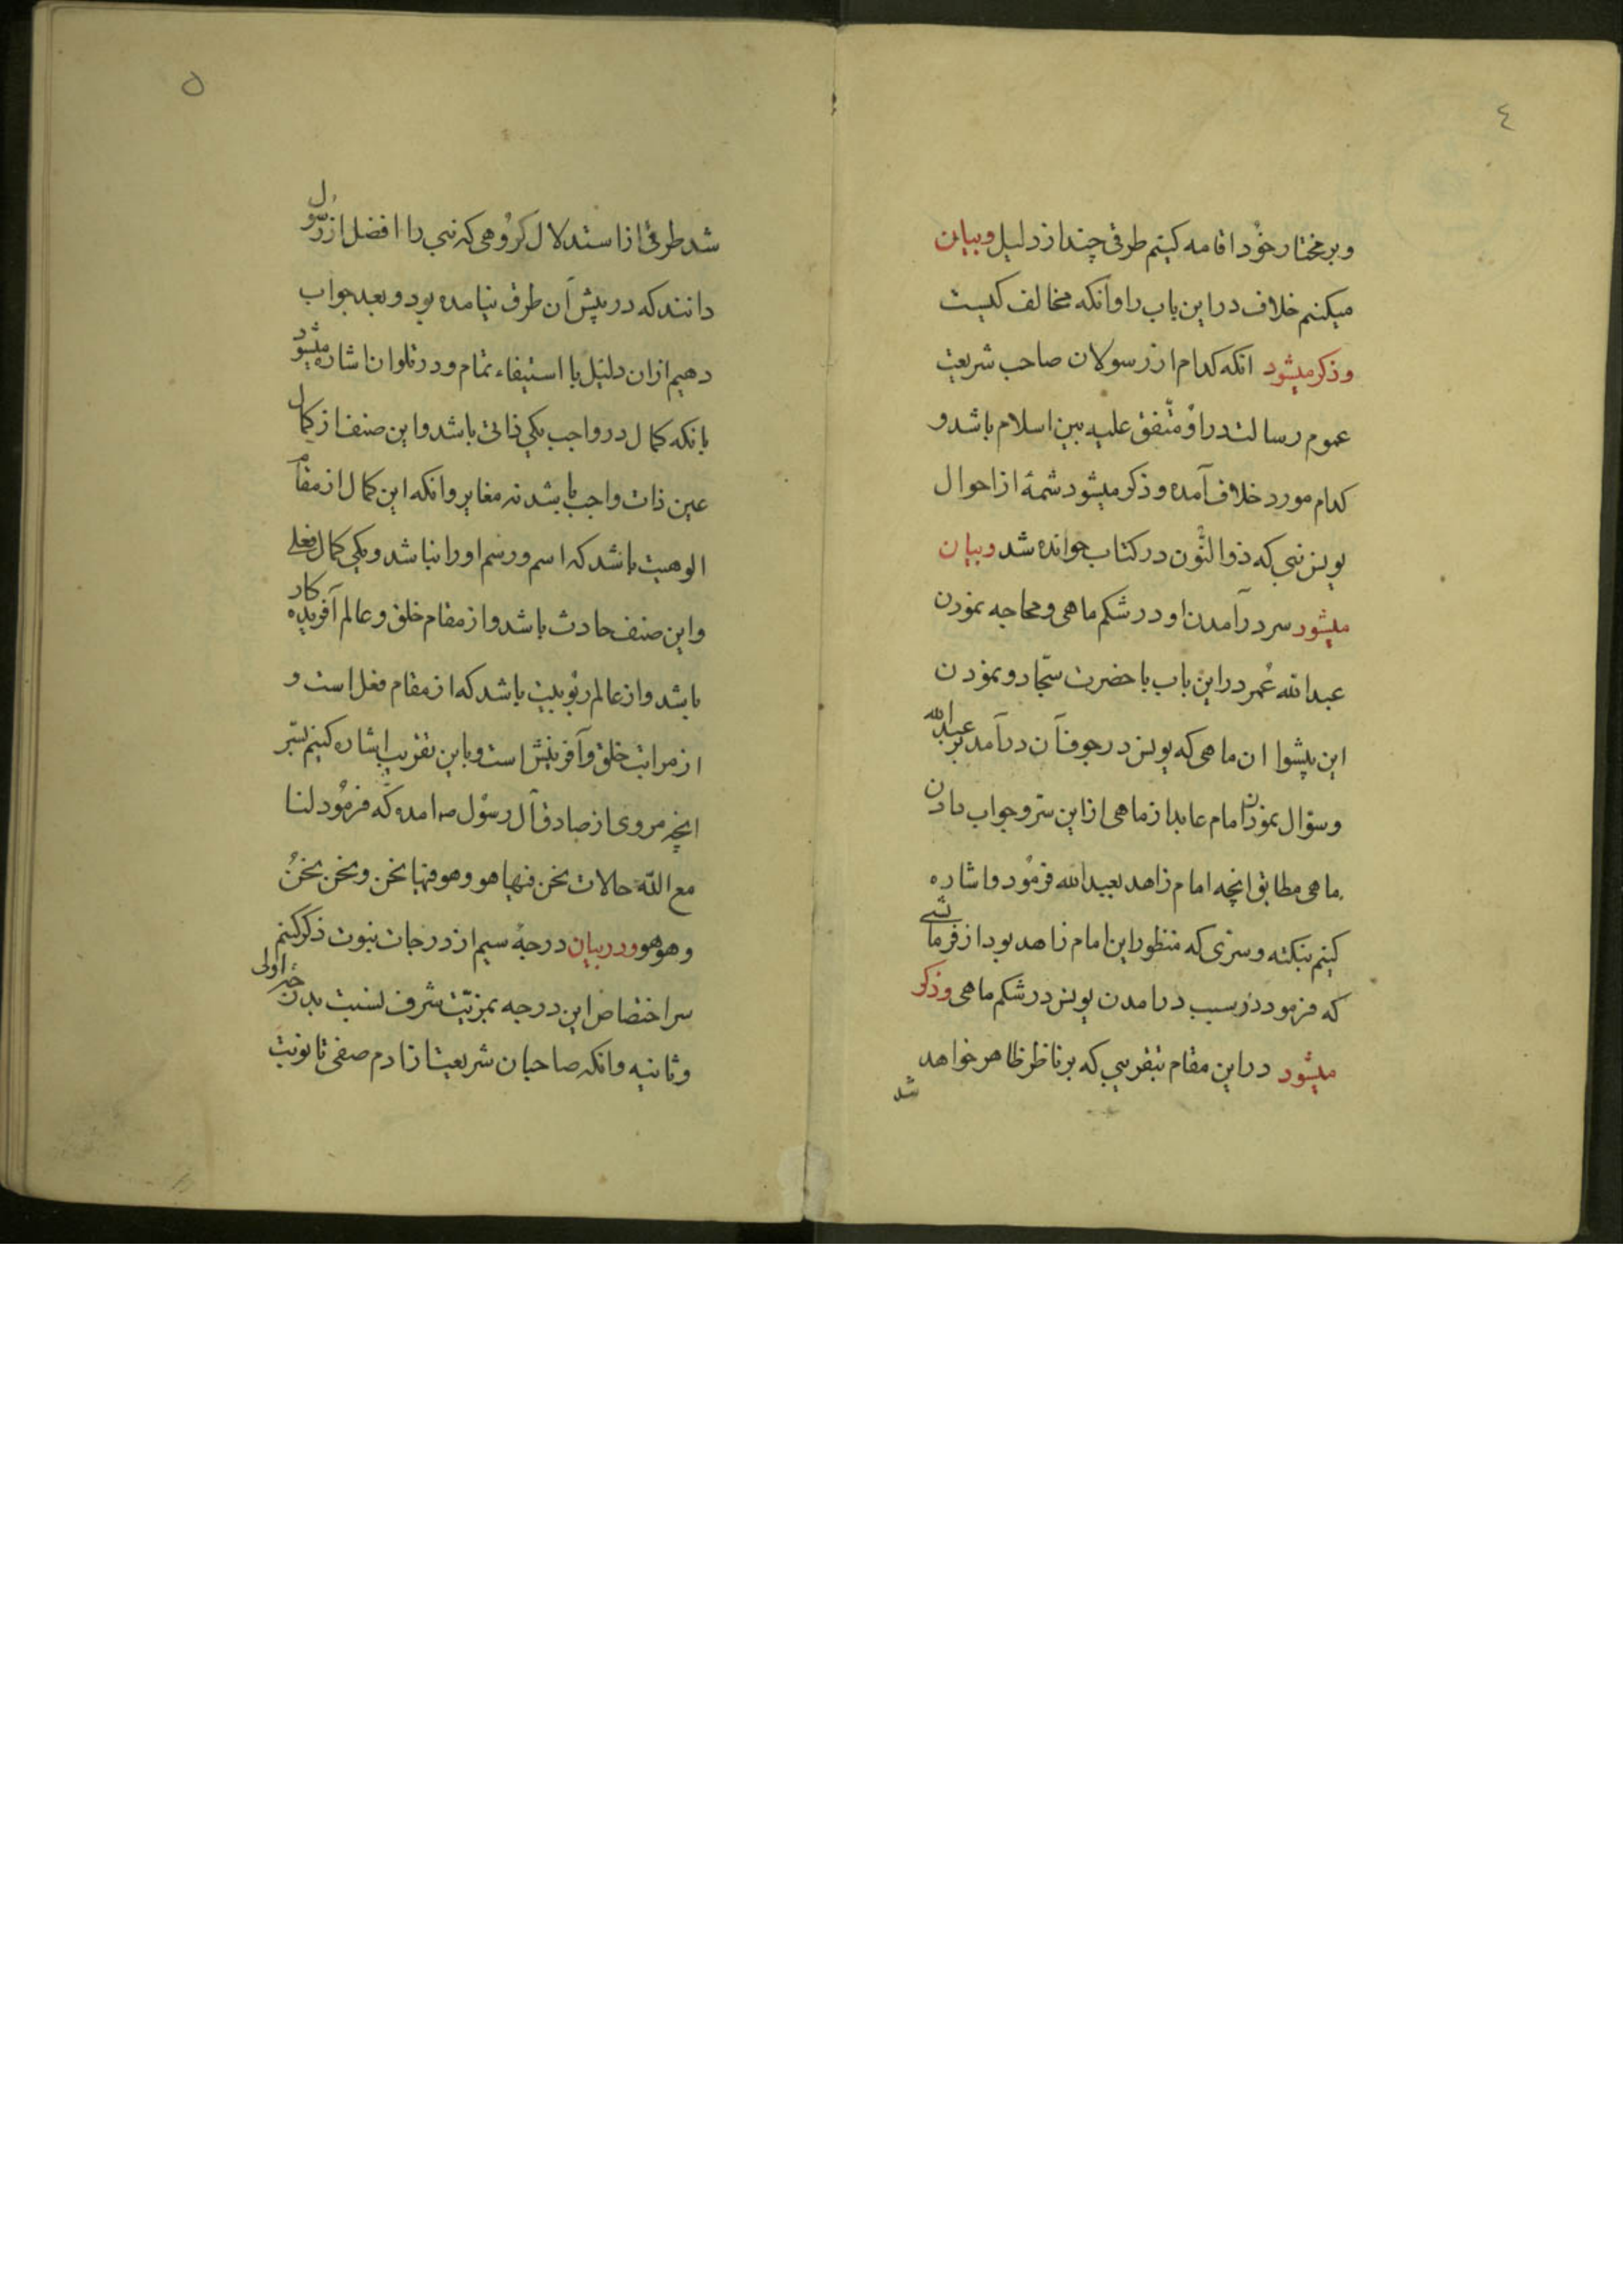 ٤
وبر مختار خود اقامه كنيم طرقى چند از دليل وبيان
ميكنيم خلاف در اين باب را وانكه مخالف كيست
وذكر ميشود انكه كدام از رسولان صاحب شريعت
عموم رسالت در او متّفق عليه بين اسلام باشد و
كدام مورد خلاف آمده وذكر ميشود شمهٔ از احوال
يونس نبى كه ذو النّون در كتاب خوانده شد وبيان
ميشود سر در آمدن او در شكم ماهى ومحاجه نمودن
عبد الله عُمر در اين باب با حضرت سجّاد و نمودن
اين پيشوا ان ماهى كه يونس در جوف آن در آمد بر عبد الله
وسؤال نمودن امام عابد از ماهى از اين سرّ وجواب دادن
ماهى مطابق انچه امام زاهد بعبد الله فرمُود واشاره
كنيم بنكته وسرّى كه منظور اين امام زاهد بود از فرمايشى
كه فرمود در سبب در امدن يونس در شكم ماهى وذكر
ميشود در اين مقام بتقريبى كه بر ناظر ظاهر خواهد
شد
٥
شد طرقى از استدلال كروهى كه نبى را افضل از رسول
دانند كه در پيش آن طرف نيامده بود وبعد جواب
دهيم از ان دليل با استيفاء تمام ودر تلو ان اشاره ميشود
بانكه كمال در واجب يكى ذاتى باشد واين صنف از كمال
عين ذات واجب باشد نه مغاير وانكه اين كمال از مقام
الوهيت باشد كه اسم ورسم او را نباشد ويكى كمال فعلى
واين صنف حادث باشد واز مقام خلق وعالم آفريده كار
باشد واز عالم ربُوبيت باشد كه از مقام فعل است و
از مراتب خلق وآفرينش است وباين تقريب اشاره كنيم بسّر
انچه مروى از صادق آل رسُول ص امده كه فرمُود لنا
مع اللّه حالات نحن فيها هو وهو فيها نحن ونحن نحنُ
وهو هو ودر بيان درجهٔ سيم از درجات نبوت ذكر كنيم
سر اختصاص اين درجه بمزيّت شرف نسبت بدرجه اولى
وثانيه وانكه صاحبان شريعت از ادم صفى تا نوبت